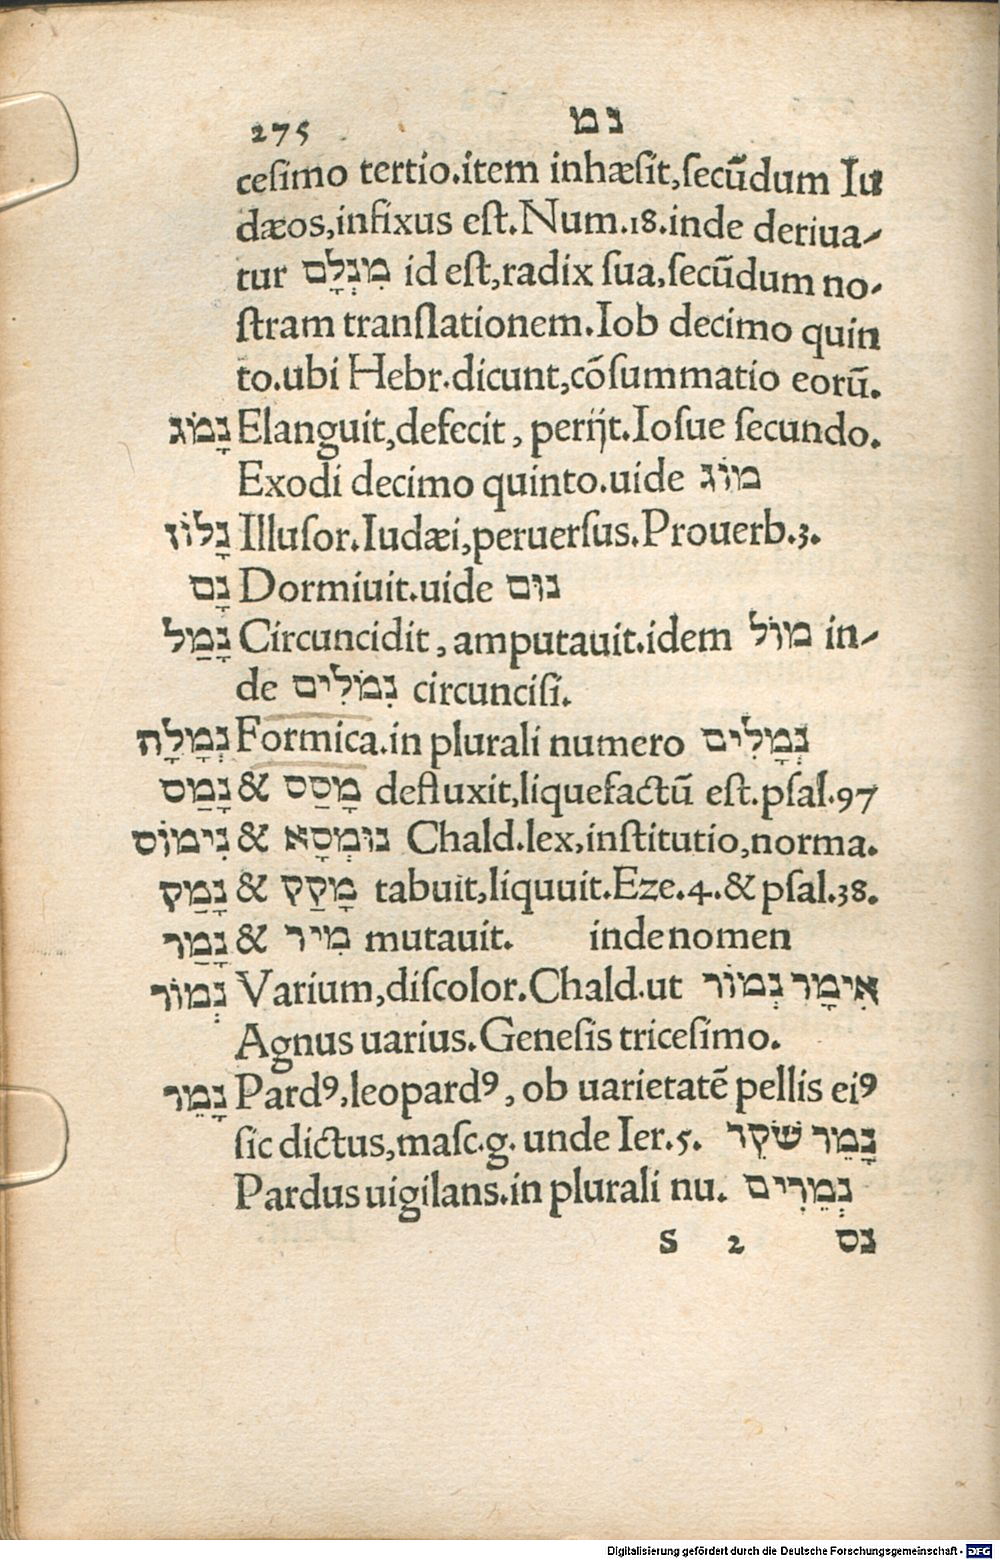 275 נמ
cesimo tertio.item inhæsit,secũdum Iu
dæos,infixus est.Num.18.inde deriua-
tur מִנְלָם id est,radix sua,secũdum no-
stram translationem.Iob decimo quin
to.ubi Hebr.dicunt,cõsummatio eorũ.
נָמֹג Elanguit,defecit, perijt.Iosue secundo.
Exodi decimo quinto.uide מוֹג
נָלוֹז Illusor.Iudæi,peruersus.Prouerb.3.
נָם Dormiuit.uide נוּם
נָמַל Circuncidit, amputauit.idem מוֹל in-
de נִמֹלִים circuncisi.
נְמָלָה Formica.in plurali numero נְמָלִים
נָמַס & מָסַס defluxit,liquefactũ est.psal.97
נִימוֹס & נוּמְסָא Chald.lex,institutio,norma.
נָמַק & מָקַק tabuit,liquuit.Eze.4.& psal.38.
נָמַר & מִיר mutauit. inde nomen
נְמוֹר Varium,discolor.Chald.ut אִימָר נְמוֹר
Agnus uarius.Genesis tricesimo.
נָמֵר Pardꝰ,leopardꝰ, ob uarietatẽ pellis eiꝰ
sic dictus,masc.g. unde Ier.5. נָמֵר שֹׁקֵר
Pardus uigilans.in plurali nu. נְמֵרִים
S 2 נס
Digitalisierung gefördert durch die Deutsche Forschungsgemeinschaft - DFG